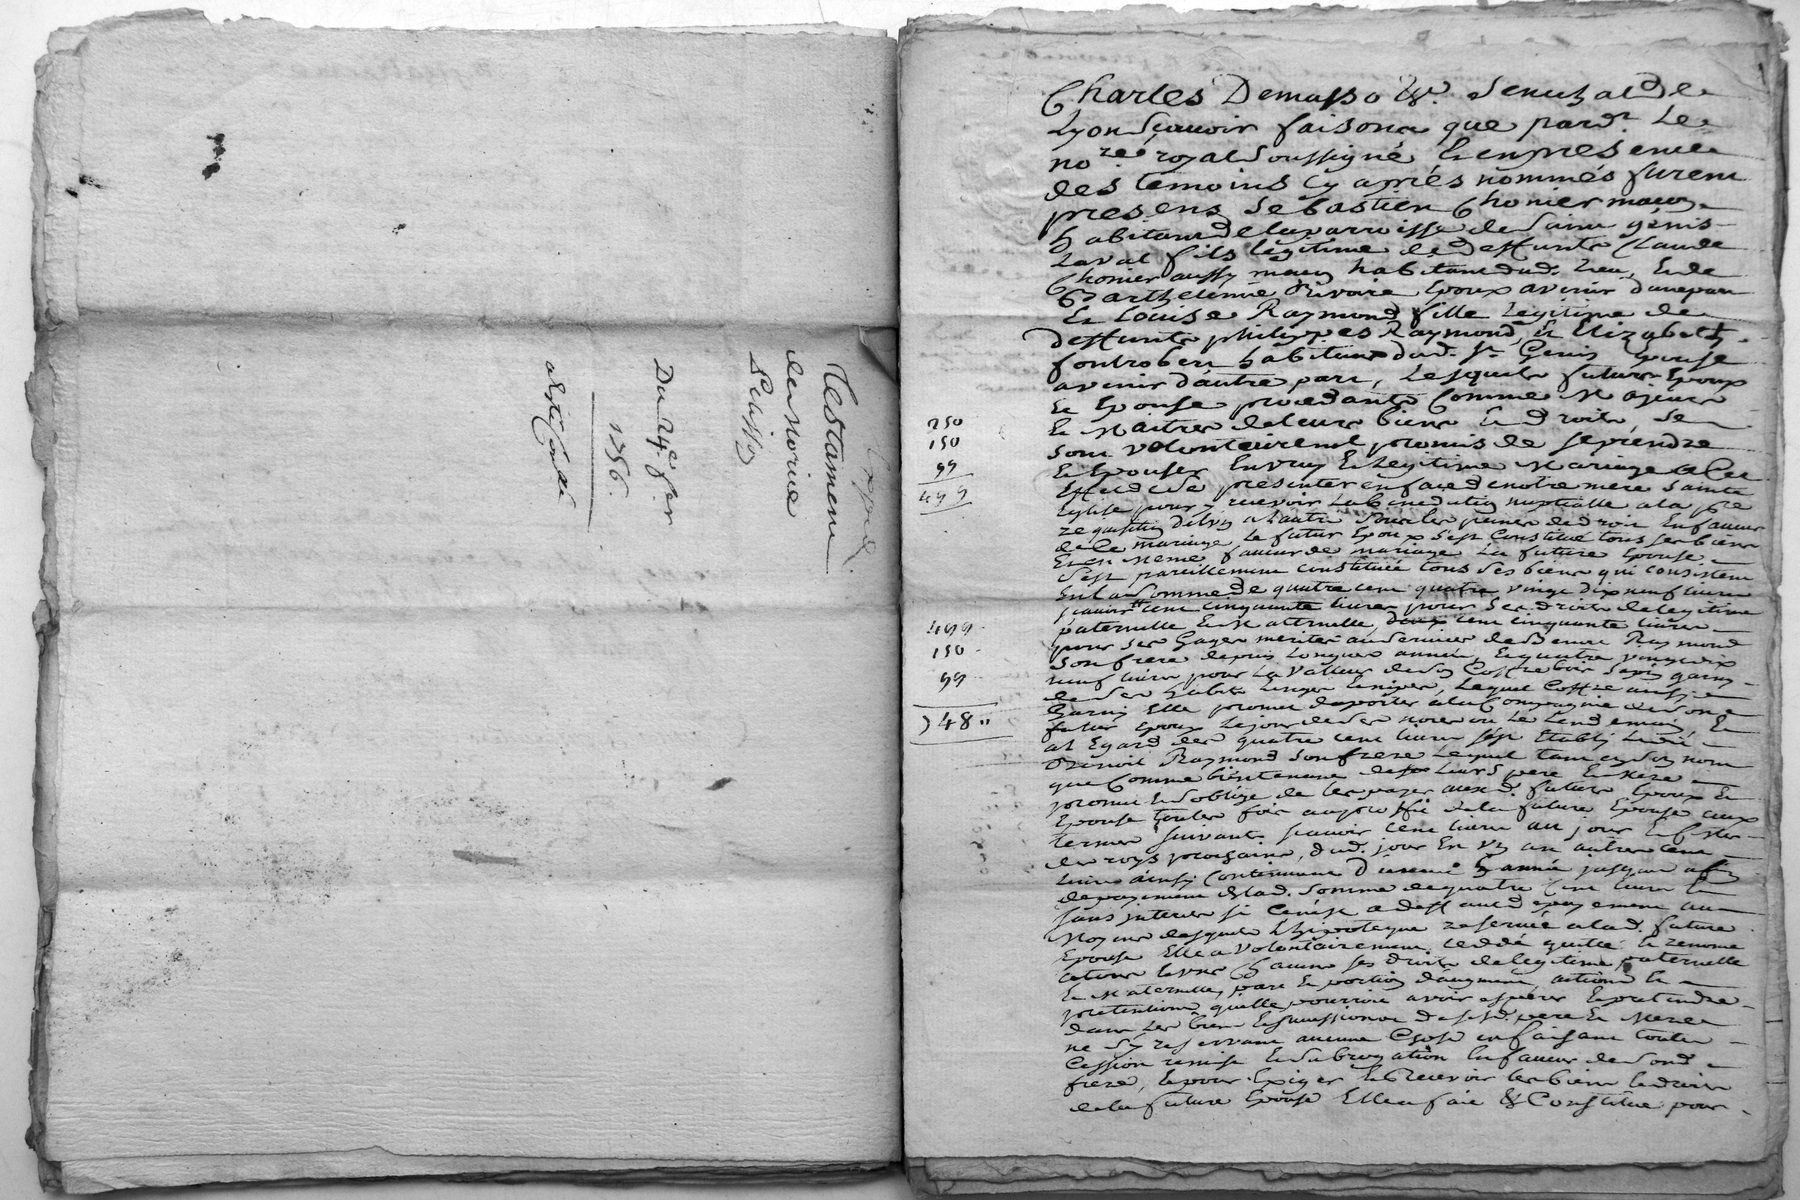 Expedié
Testament
de Morice
Pelisson
Du 24e fer
1756.
Charles Demasso &a. Senechal de
Lyon Sçavoir faisons que pardt Le
nore royal Soussigné Et en presence
des temoins Cy aprés nommés furent
presens Sebastien Chonier maçon
habitant de la parroisse de Saint genis
Laval fils legitime de deffunts Claude
Chonier aussy maçon habitant dud. Lieu, Et de
Barthelemie Rivoire Epoux avenir d'une part
Et Louise Raymond fille Legitime de
deffunts philippes Raymond Et Elizabeth
fontrobert habitant dud. St Genis Epouse
avenir d'autre part, Lesquels futurs Epoux
Et Epouse procedants Comme Majeurs
Et Maitres de leurs biens Et droits, Se
sont volontairement promis de se prendre
Et Epouser En vray Et Legitime Mariage a Cet
Effect de se presenter en face de notre mere Sainte
Eglise pour y recevoir La benediction nuptialle a la pre
requisition de l'un a L'autre Sous les peines de droit En faveur
de Ce mariage Le futur Epoux S'est Constitué tous ses biens
Et En Meme faveur de mariage La future Epouse
S'est pareillement constituée tous ses biens qui consistent
En La Somme de quatre cent quatre vingt dix neuf livres
sçavoir cent cinquante livres pour ses droits de legitime
paternelle Et Maternelle, deux cent cinquante livres
pour ses Gages merités au service de Benoit Raymond
Son frere depuis Longues années, Et quatre vingt dix
neuf livres pour La Valleur de son Coffre bois sapin garny
de ses habits Linges Lequel Coffre ainsy
Garny Elle promet d'apporter a la Compagnie de Son
futur Epoux Le jour de ses noces ou Le Lendemain, Et
at Egard des quatre cent livres s'est Etably Ledit
Benoit Raymond Son frere Lequel tant en son nom
que Comme bientenant de Leurs pere Et Mere
promet Et s'oblige de les payer auxd. futurs Epoux Et
Epouse toutes fois au proffit de la future Epouse aux
termes suivants sçavoir Cent livres au jour Et feste
des roys prochaine, dud. jour En un an autres cent
livres ainsy Continuant D'année En année jusqu'au
payement de lad. Somme de quatre Cent livres Et
sans interets si Ce n'est a deffaut de payement au
Moyens desquels L'hipoteque reservée a lad. future
Epouse Elle a Volontairement Ceddé quitté Et remis
ses droits de legitime paternelle
Et Maternelle, part Et portion d'augment, actions Et
pretentions qu'elle pourroit avoir esperer Et pretendre
dans Les biens Et successions de sesd. pere Et Mere
ne s'y reservant aucune Chose en faisant toutes
Cession remise Et subrogation En faveur de Sond
frere, Et pour Exiger Et Recevoir les biens Et droits
de la future Epouse Elle a fait & Constitué pour
250
150
99
499
499
150
99
748"